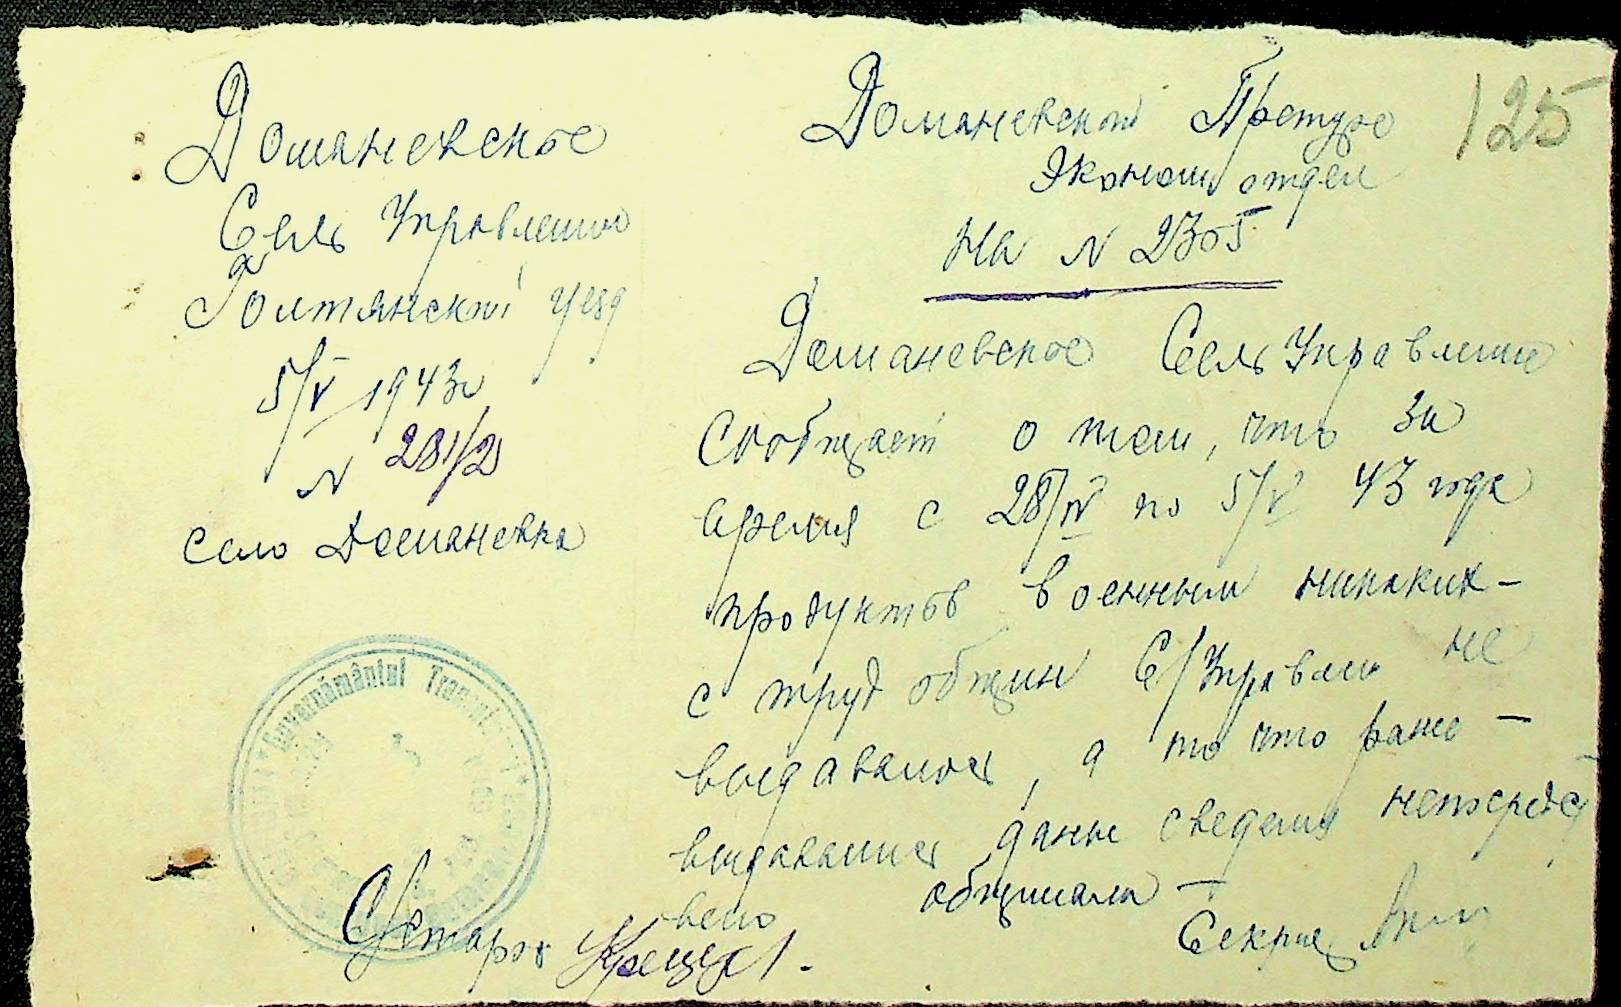 125
Домановское
Сель Управление
Голтянский уезд
5/V 1943 г
N 281/2
село Домановка
Домановской Претуре
Эконом отдел
На N 2305
Домановское Сель Управление
сообщает о том, что за
время с 28/IV по 5/V 43 года
продуктов военным никаких –
с труд общин С/Управлен не
выдавалось, а то что ранее –
выдавалось даны сведения непосредс
твено общинами –
Guvernământul
С/Староста
Секрет